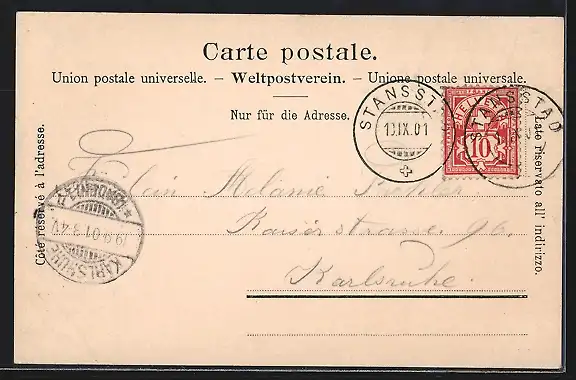 Carte postale.
Union postale universelle. – Weltpostverein. – Unione postale universale.
Nur für die Adresse.
Côté réservé à l'adresse.
Lato riservato all' indirizzo.
STANSSTAD
IX.01
HELVETIA
10
STANSSTAD
KARLSRUHE
9.01.3-4
Melanie
Kaiserstrasse 96.
Karlsruhe.